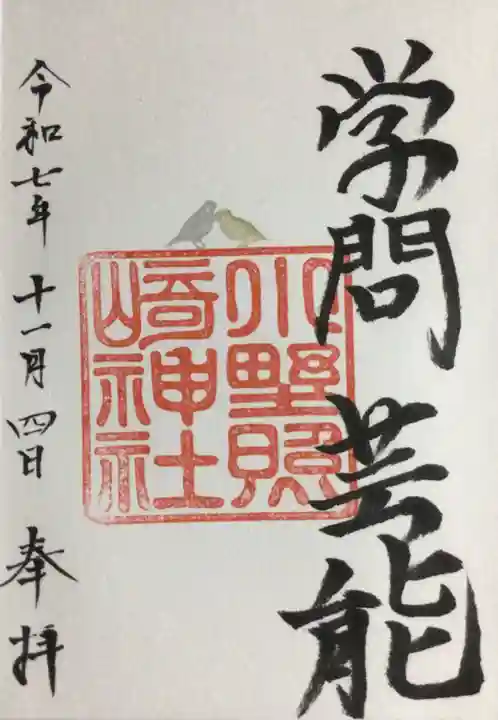 学問 芸能
小野照
崎神社
令和七年 十一月 四日 奉拝